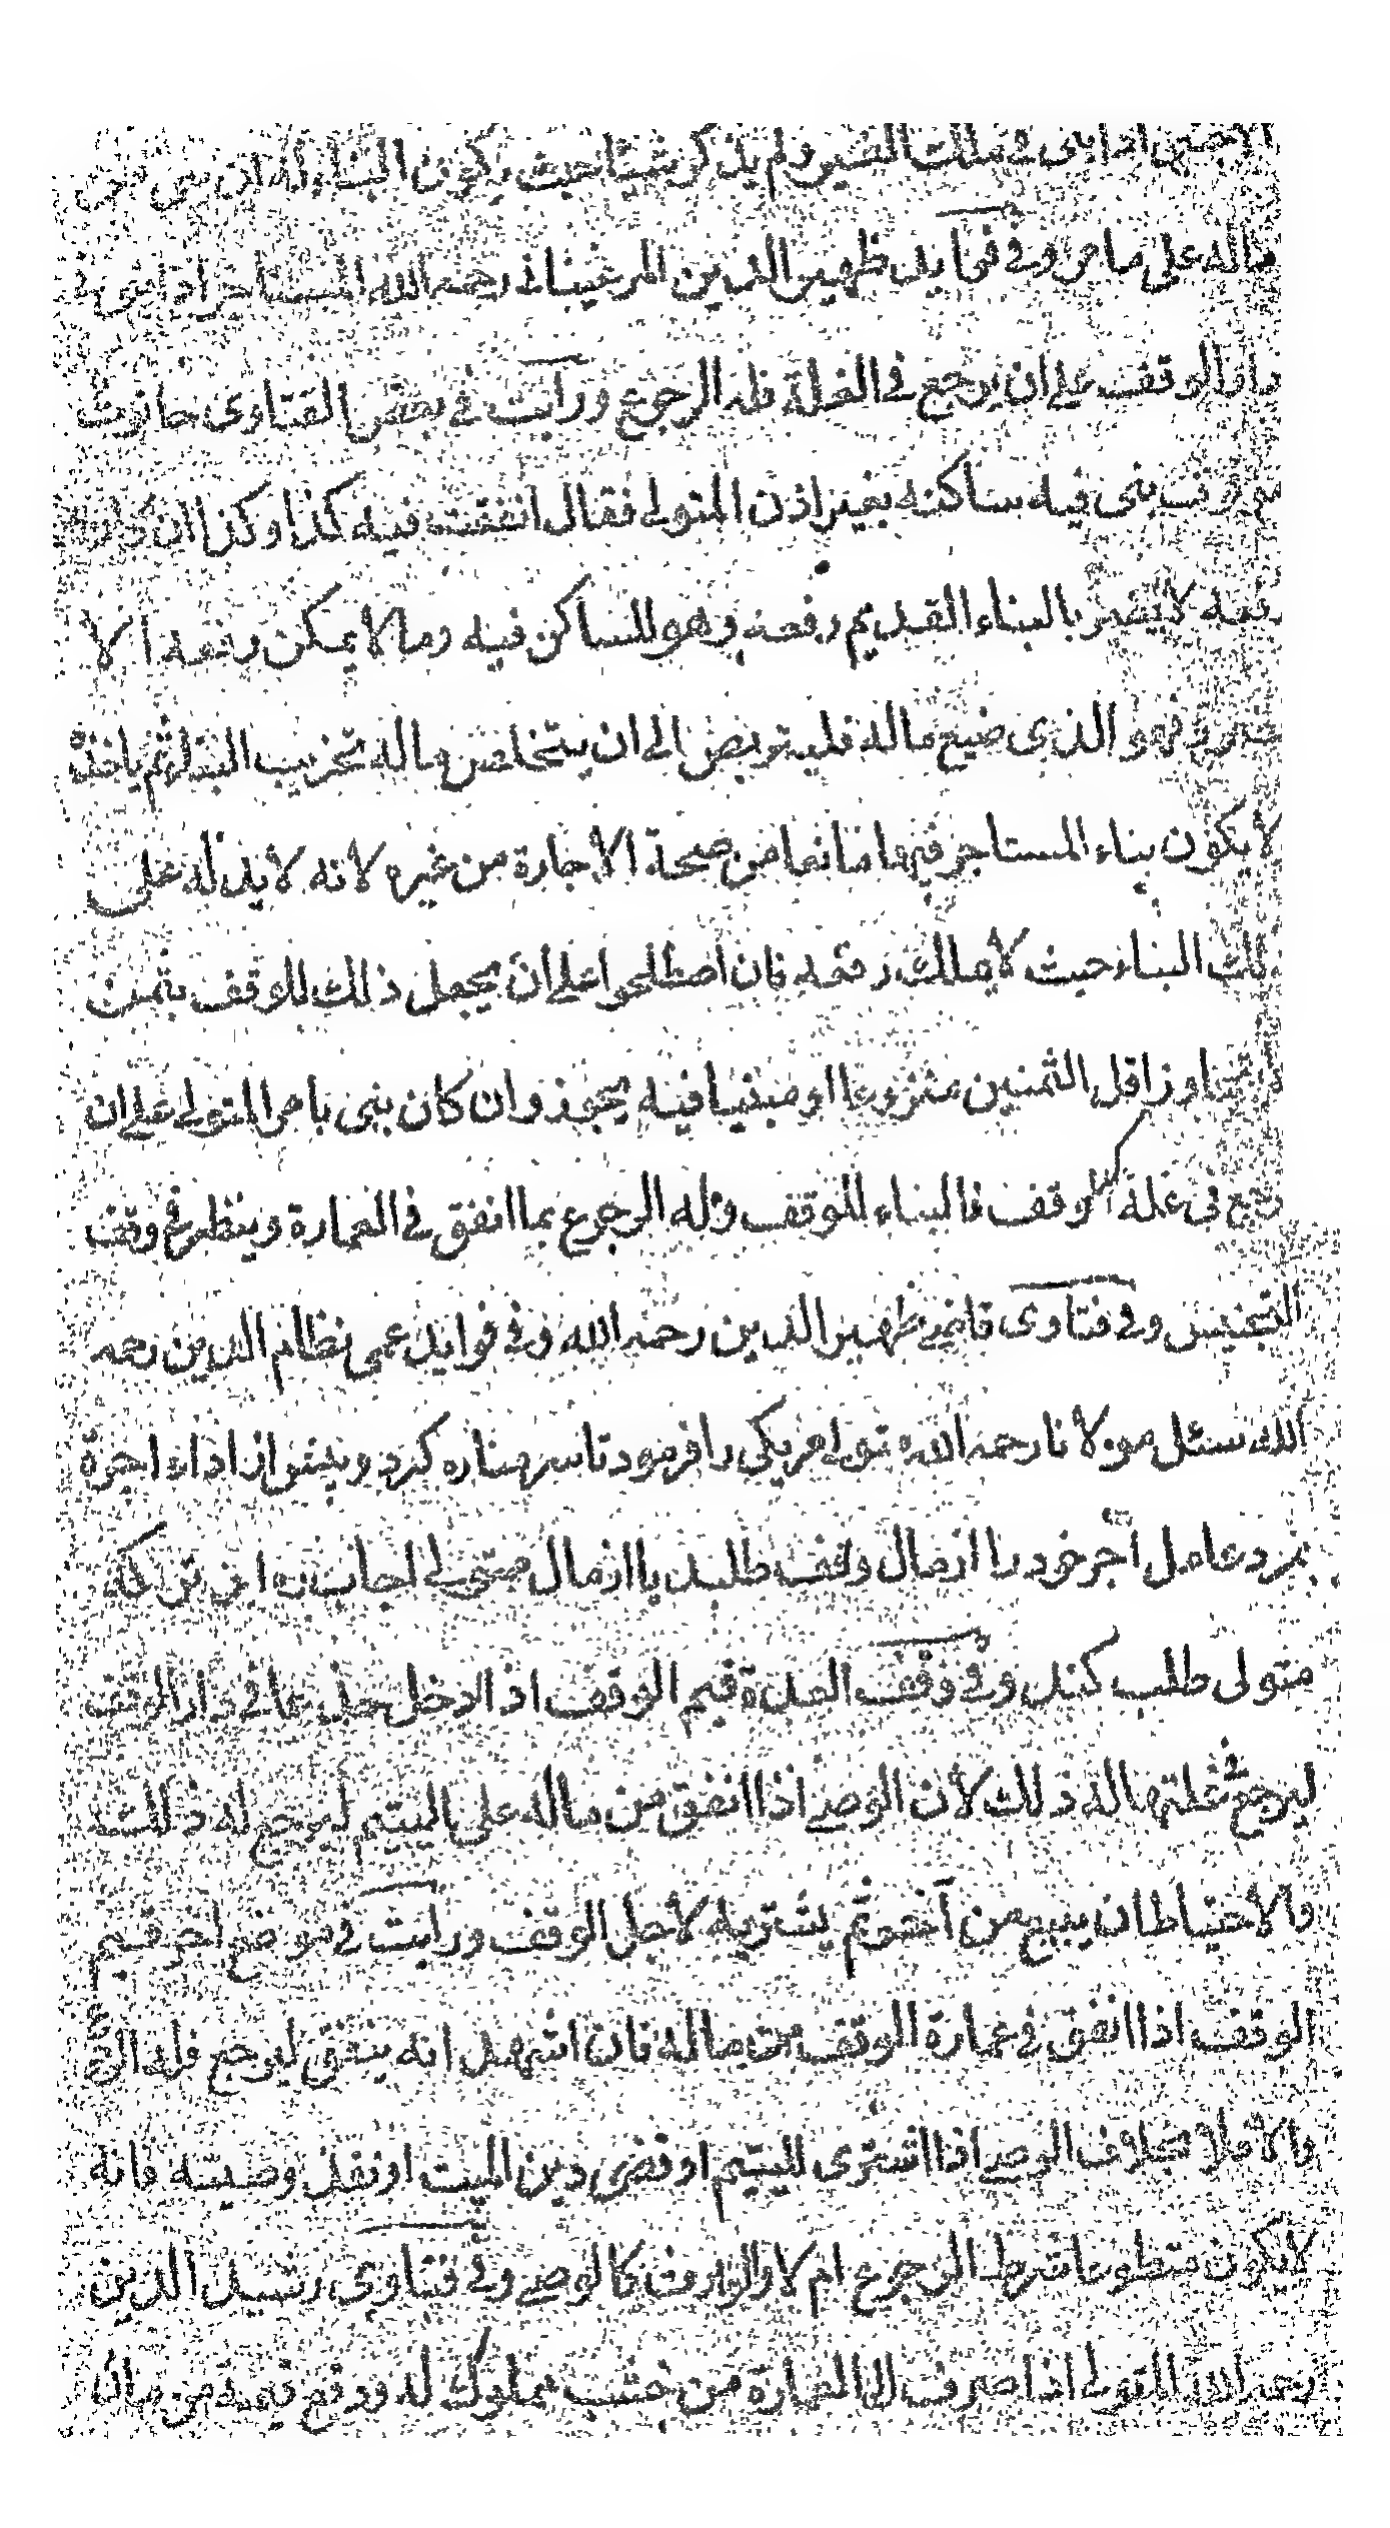 الاجنبى اذا بنى فى ملك الغير ولم يذكر شيئا حيث يكون البناء له ان بنى من
ماله على ما مر وفى فوايد ظهير الدين المرغينانى رحمه الله المستاجر اذا بنى فى
دار الوقف على ان يرجع فى الغلة فله الرجوع ورأيت فى بعض الفتاوى حانوت
بنى فيه ساكنه بغير اذن المتولى فقال انفقت فيه كذا وكذا ان كان
رفعه لا يضر بالبناء القديم رفعه وهو للساكن فيه وما لا يمكن رفعه الا
بضرر فهو الذى ضيع ماله فليتربص الى ان يتخلص ماله بتخريب البناء ثم ياخذه
لا يكون بناء المستاجر فيها مانعا من صحة الاجارة من غيره لانه لا يد له على
ذلك البناء حيث لا يملك رفعه فان اصطلحوا على ان يجعل ذلك للوقف بثمن
لا يتجاوز اقل الثمنين منزوعا او مبنيا فيه يجوز وان كان بنى بامر المتولى على ان
يرجع فى غلة الوقف فالبناء للوقف وله الرجوع بما انفق فى العمارة وينظر فى وقف
التجنيس وفى فتاوى قاضى ظهير الدين رحمه الله وفى فوايد عمى نظام الدين رحمه
الله سئل مولانا رحمه الله متولى مزيكى را فرمود تا سر مناره كرد وپيش از اداء اجرة
بمرد عامل اجر خود را از مال وقف طلبد يا از مال متولى اجاب نه از تركه
متولى طلب كند وفى وقف العدة قيم الوقف اذا ادخل جذعا فى دار الوقف
ليرجع فى غلتها له ذلك لان الوصى اذا انفق من ماله على اليتيم ليرجع له ذلك
فالاحتياط ان يبيع من آخر ثم يشتريه لاجل الوقف ورأيت فى موضع اخر قيم
الوقف اذا انفق فى عمارة الوقف من ماله فان اشهد انه ينفق ليرجع فله الرجوع
والا فلا بخلاف الوصى اذا اشترى لليتيم او قضى دين الميت او نفذ وصيته فانه
لا يكون متطوعا شرط الرجوع ام لا والوارث كالوصى وفى فتاوى رشيد الدين
رحمه الله المتولى اذا صرف الى العمارة من خشب مملوك له ودفع قيمته من مال